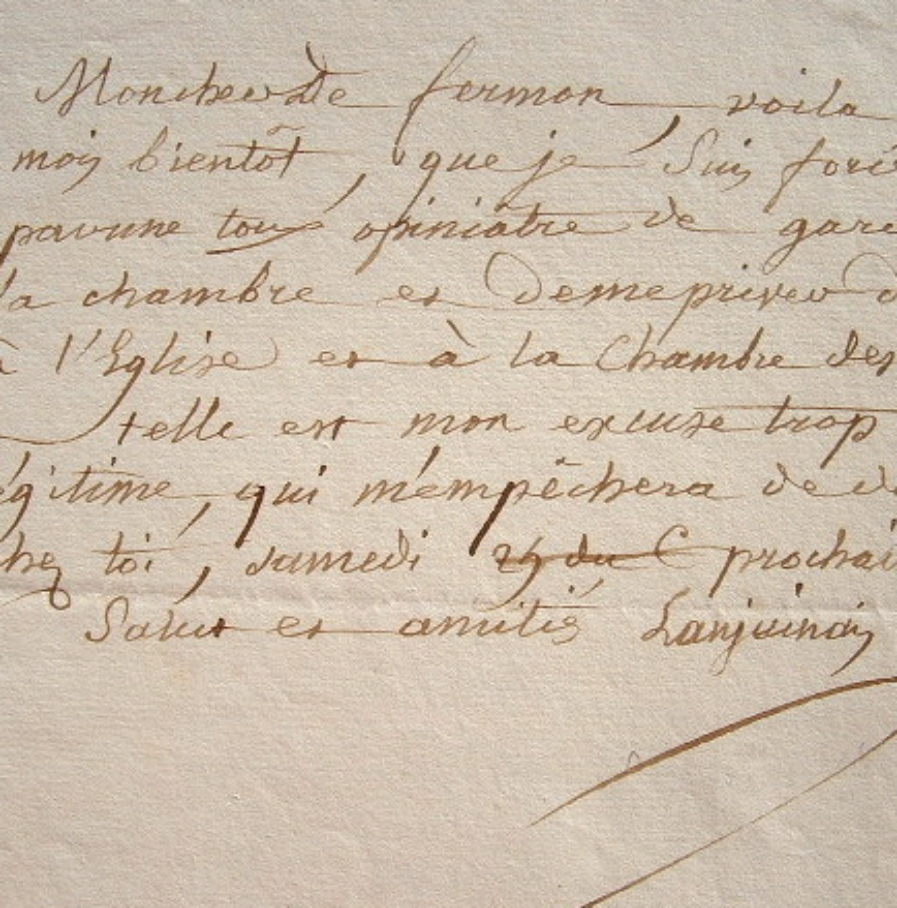 Mon cher De fermon, voila
mois bientôt, que je suis forc
par une toux opiniatre de gard
la chambre et de me priver d
à l'Eglise et à la Chambre des
telle est mon excuse trop
égitime, qui m'empêchera de d
hez toi, samedi 29 du C prochai
Salut et amitiés Lanjuinais